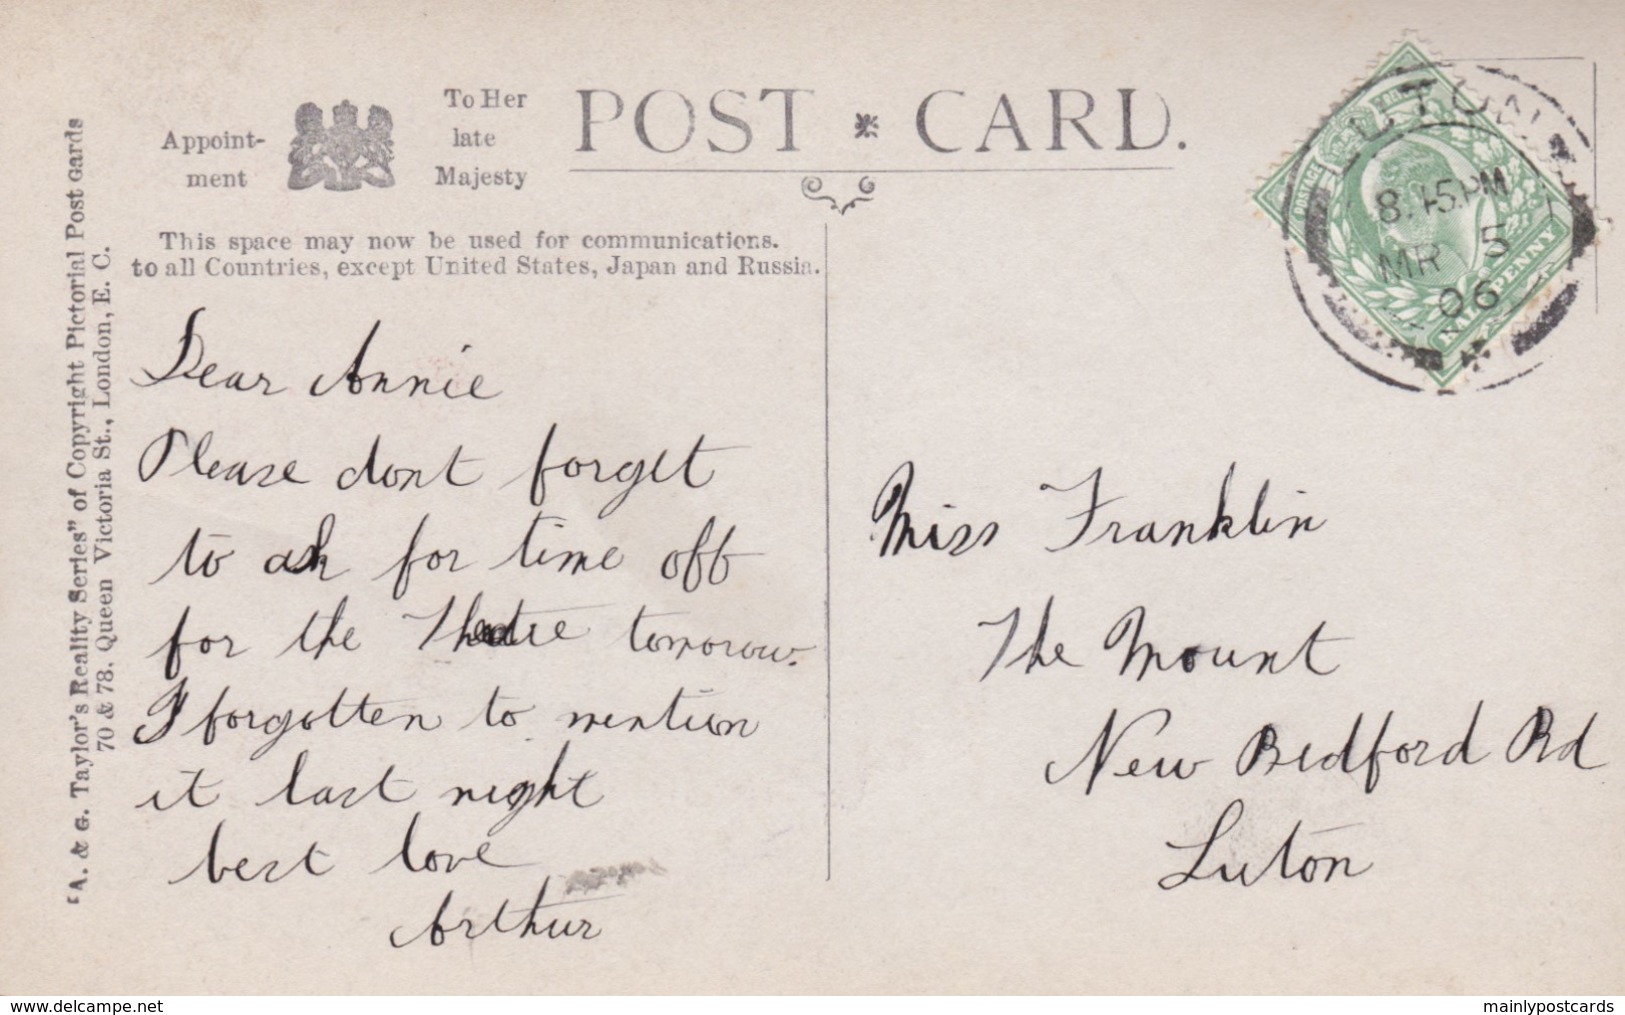 "A. & G. Taylor's Reality Series" of Copyright Pictorial Post Cards
70 & 78. Queen Victoria St., London, E. C.
Appoint-
ment
To Her
late
Majesty
POST CARD.
This space may now be used for communications.
to all Countries, except United States, Japan and Russia.
LUTON
8.15PM
MR 5
06
POSTAGE
PENNY
Dear Annie
Please dont forget
to ask for time off
for the Theatre tomorow.
I forgotten to mention
it last night
best love
Arthur
Miss Franklin
The Mount
New Bedford Rd
Luton
www.delcampe.net
mainlypostcards